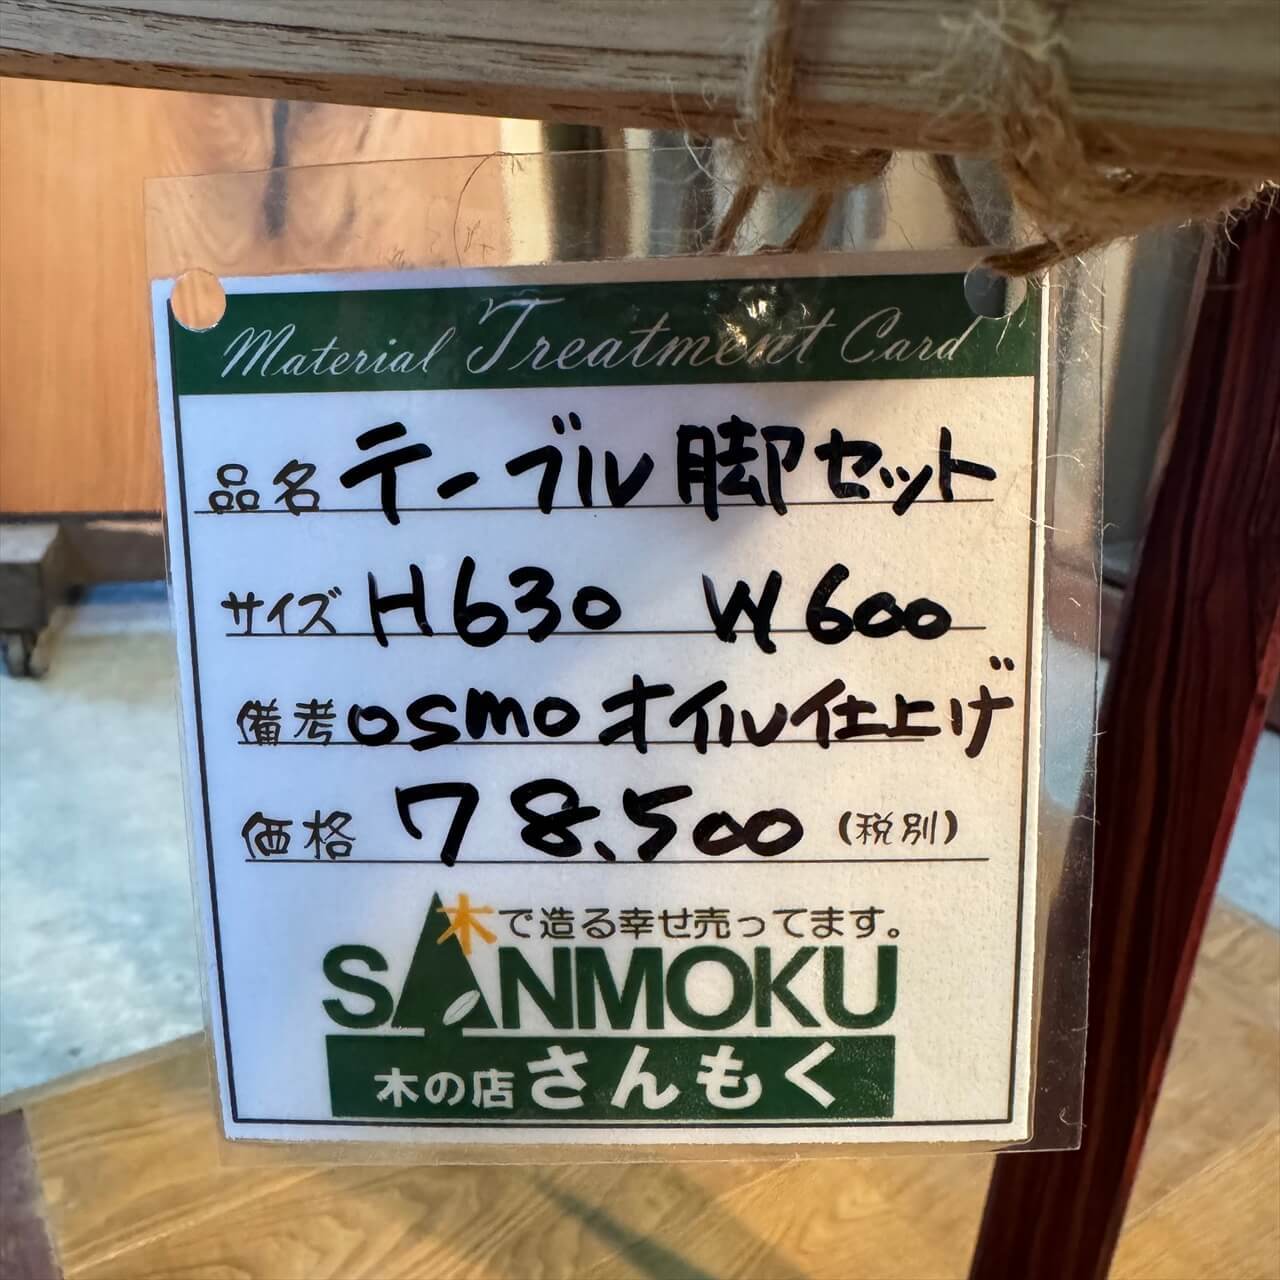 Material Treatment Card
品名 テーブル脚セット
サイズ H630 W600
備考 osmoオイル仕上げ
価格 78,500 (税別)
木で造る幸せ売ってます。
SANMOKU
木の店 さんもく